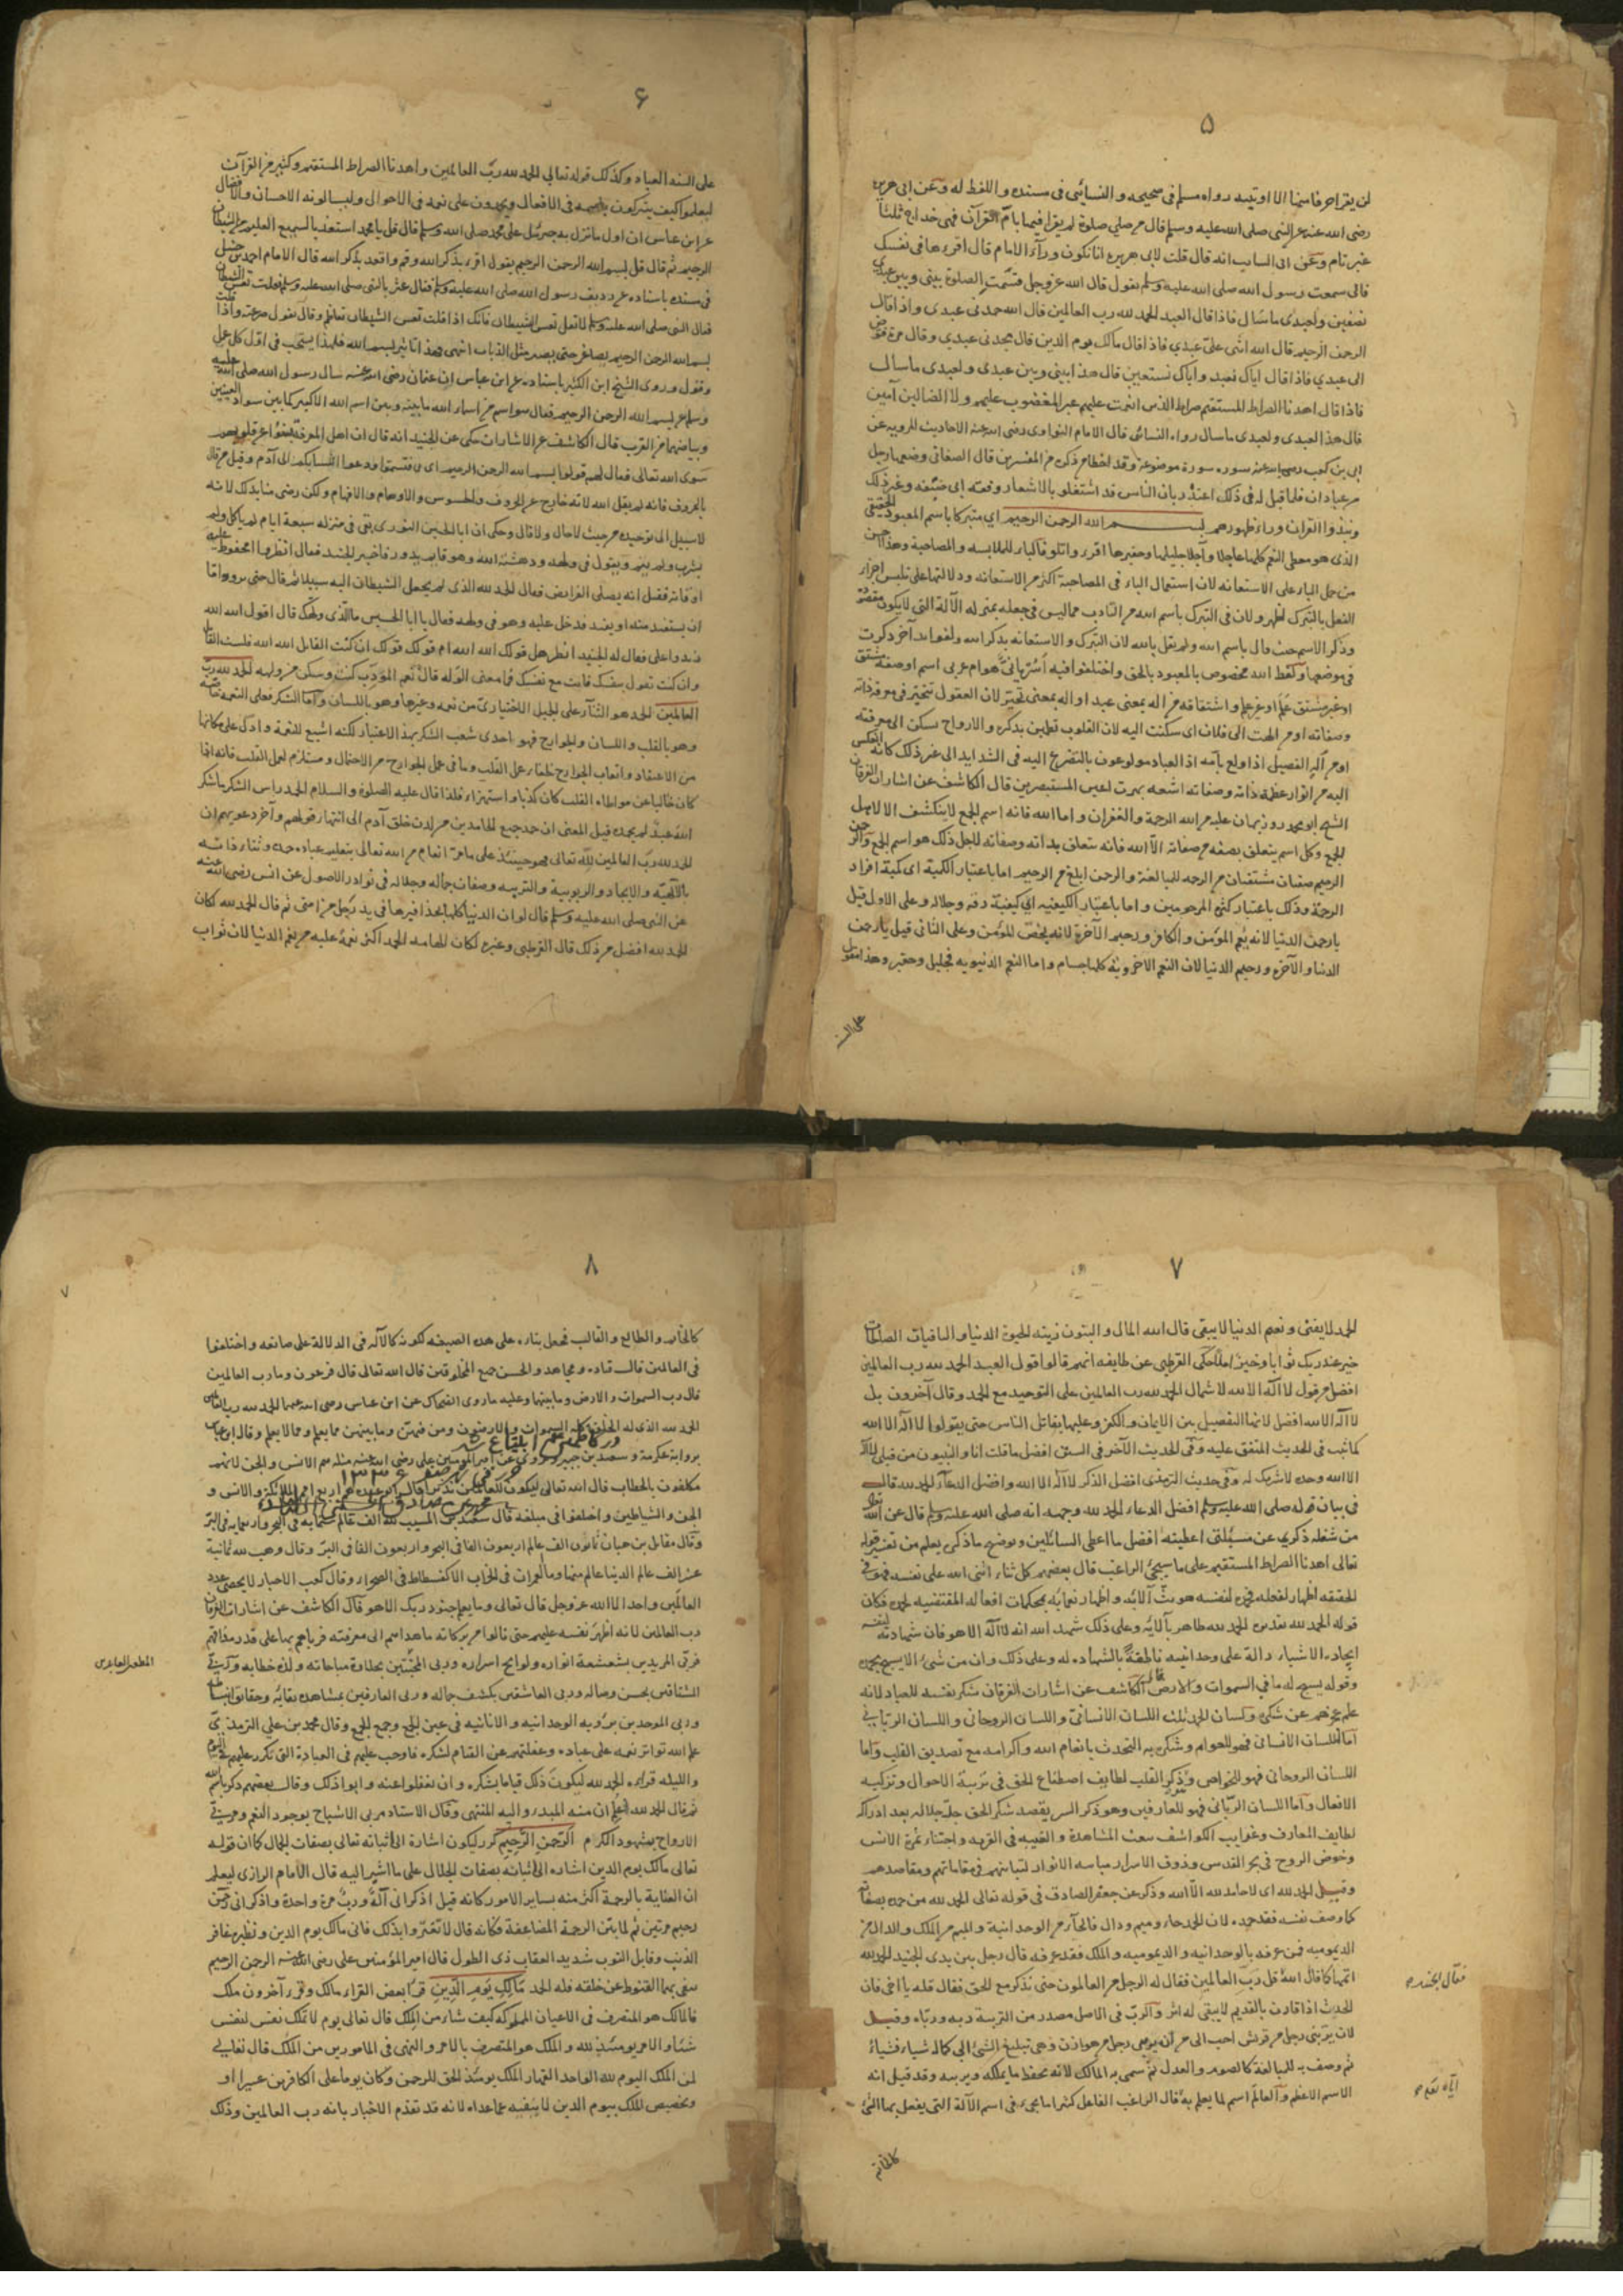 ۵
لن يقرأ حرفا منها الا اوتيته رواه مسلم فى صحيحه والنسائى فى مسنده واللفظ له وعن ابى هريرة
رضى الله عنه عن النبى صلى الله عليه وسلم قال من صلى صلوة لم يقرا فيها بام القرآن فهى خداج ثلثا
غير تام وعن ابى السايب انه قال قلت لابى هريره انا نكون ورآء الامام قال اقرءها فى نفسك
فانى سمعت رسول الله صلى الله عليه وسلم يقول قال الله عز وجل قسمت الصلوة بينى وبين عبدى
نصفين ولعبدى ما سال فاذا قال العبد الحمد لله رب العالمين قال الله حمدنى عبدى واذا قال
الرحمن الرحيم قال الله اثنى على عبدي فاذا قال مالك يوم الدين قال مجدنى عبدي وقال مرة فوض
الى عبدي فاذا قال اياك نعبد واياك نستعين قال هذا بينى وبين عبدى ولعبدى ما سال
فاذا قال اهدنا الصراط المستقيم صراط الذين انعمت عليهم غير المغضوب عليهم ولا الضالين آمين
قال هذا لعبدى ولعبدى ما سال رواه النسائى قال الامام النواوى رضى الله عنه الاحاديث المرويه عن
ابى بن كعب رضى الله عنه سوره سورة موضوعة وقد اخطا من ذكره من المفسرين قال الصغانى وضعها رجل
من عبادان فلما قيل له فى ذلك اعتذر بان الناس قد اشتغلو بالاشعار وفقه ابى حنيفه وغير ذلك
ونبذوا القران وراء ظهورهم بسم الله الرحمن الرحيم اي متبركا باسم المعبود الحقيقى
الذى هو معطى النعم كلها عاجلا وآجلا جليلها وحقيرها اقرء واتلو فالباء للملابسه والمصاحبة وهذا احسن
من حمل الباء على الاستعانه لان استعمال الباء فى المصاحبة اكثر من الاستعانه ودلالتها على تلبس اجزاء
الفعل بالتبرك اظهر ولان فى التبرك باسم الله من التادب مما ليس فى جعله بمنزله الآلة التى لا يكون مقصودة
وذكر الاسم حيث قال باسم الله ولم يقل بالله لان التبرك والاستعانه بذكر الله ولفوايد آخر ذكرت
فى موضعها ولفظ الله مخصوص بالمعبود بالحق واختلفوا فيه أسريانى هو ام عربى اسم او صفة مشتق
او غير مشتق علم او غير علم واشتقاقه من اله بمعنى عبد او اله بمعنى تحير لان العقول تتحير فى معرفة ذاته
وصفاته او من الهت الى فلان اى سكنت اليه لان القلوب تطمئن بذكره والارواح يسكن الى معرفته
او من اله الفصيل اذا ولع بامه اذ العباد مولوعون بالتضرع اليه فى الشدايد الى غير ذلك
اليه من انوار عظمة ذاته وصفاته اشعه بهرت اعين المستبصرين قال الكاشف عن اشارات الفرقان
الشيخ ابو محمد روزبهان عليه من الله الرحمة والغفران واما الله فانه اسم الجمع لا ينكشف الا لاهل
الجمع وكل اسم يتعلق بصفه من صفاته الا الله فانه يتعلق بذاته وصفاته لاجل ذلك هو اسم الجمع والرحمن
الرحيم صفتان مشتقتان من الرحمه للمبالغة والرحمن ابلغ من الرحيم اما باعتبار الكمية اى كمية افراد
الرحمة وذلك باعتبار كثرة المرحومين واما باعتبار الكيفيه اى كيفية وعلى الاول قيل
يا رحمن الدنيا لانه يعم المؤمن والكافر ورحيم الآخرة لانه يخص المؤمن وعلى الثانى قيل يا رحمن
الدنيا والآخره ورحيم الدنيا لان النعم الاخرويه كلها جسام واما النعم الدنيويه فجليل وحقير وهذا مقول
على السنه
۶
على السنه العباد وكذلك قوله تعالى الحمد لله رب العالمين واهدنا الصراط المستقيم وكثير من القرآن
ليعلموا كيف يتبركون باسمه فى الافعال ويحمدون على نعمه فى الاحوال وليسالونه الاحسان والافضال
عن ابن عباس ان اول ما نزل به جبرئيل على محمد صلى الله عليه وسلم قال قل يا محمد استعيذ بالسميع العليم من الشيطان
الرجيم ثم قال قل بسم الله الرحمن الرحيم يقول اقرء بذكر الله وقم واقعد بذكر الله قال الامام احمد بن حنبل
فى مسنده باسناده عن رديف رسول الله صلى الله عليه وسلم قال عثر بالنبى صلى الله عليه وسلم فقلت تعس الشيطان
فقال النبى صلى الله عليه وسلم لا تقل تعس الشيطان فانك اذا قلت تعس الشيطان تعاظم وقال بقوتى صرعته واذا قلت
بسم الله الرحمن الرحيم يصاغر حتى يصير مثل الذباب انتهى فهذا تاثير بسم الله فلهذا يستحب فى اول كل عمل
وقول وروى الشيخ ابن الكثير باسناده عن ابن عباس ان عثمان رضى الله عنه سال رسول الله صلى الله عليه
وسلم عن بسم الله الرحمن الرحيم فقال هو اسم من اسماء الله ما بينه وبين اسم الله الاكبر كما بين سواد العينين
وبياضهما من القرب قال الكاشف عن الاشارات حكى عن الجنيد انه قال ان اهل المعرفة
سوى الله تعالى فقال لهم قولوا بسم الله الرحمن الرحيم
بالحروف فانه لم يقل الله لانه خارج عن الحروف والحسوس والاوهام والافهام ولكن رضى منا بذلك لانه
لا سبيل الى توحيده من حيث لا حال ولا قال وحكى ان ابا الحسين النورى بقى فى منزله سبعة ايام لم ياكل ولم
يشرب ولم ينم ويقول فى ولهه ودهشته الله الله وهو قايم يدور فاخبر الجنيد فقال انظروا امحفوظ عليه
اوقاته فقيل انه يصلى الفرايض فقال الحمد لله الذى لم يجعل للشيطان اليه سبيلا ثم قال
فدخل عليه وهو فى ولهه فقال يا ابا الحسين ما الذى ولهك قال اقول الله الله
فقال له الجنيد انظر هل قولك الله الله ام قولك قولك ان كنت القايل الله الله فلست القايل
وان كنت تقول بنفسك فانت مع نفسك فما معنى الوله قال نعم المؤدب كنت وسكن من ولهه الحمد لله رب
العالمين الحمد هو الثنآء على الجميل الاختيارى من نعمه وغيرها وهو باللسان واما الشكر فعلى النعمه خاصه
وهو بالقلب واللسان والجوارح فهو احدى شعب الشكر بهذا الاعتبار لكنه اشيع للنعمة وادل على مكانها
من الاعتقاد واتعاب الجوارح لخفاء عمل القلب وما فى عمل الجوارح من الاحتمال ومستلزم لعمل القلب فانه اذا
كان خاليا عن مواطاءه القلب كان كذبا واستهزاء فلذا قال عليه الصلوة والسلام الحمد راس الشكر ما شكر
الله عبد لم يحمده قيل المعنى ان حمد جميع الحامدين من لدن خلق آدم الى انتهاء قولهم وآخر دعويهم ان
الحمد لله رب العالمين لله تعالى فهو حينئذ على ما من انعام من الله تعالى بتعليم عباده حمده وثناء ذاته
بالالهيّه والايجاد والربوبية والتربيه وصفات جماله وجلاله فى نوادر الاصول عن انس رضى الله عنه
عن النبى صلى الله عليه وسلم قال لو ان الدنيا كلها بحذافيرها فى يد رجل من امتى ثم قال الحمد لله لكان
الحمد لله افضل من ذلك قال القرطبى وغيره لكان الهامه الحمد اكثر نعمة عليه من نعم الدنيا لان ثواب
۷
الحمد لا يفنى ونعيم الدنيا لا يبقى قال الله المال والبنون زينه الحيوة الدنيا والباقيات الصالحات
خير عند ربك ثوابا وخير املا حكى القرطبى عن طايفه انهم قالوا قول العبد الحمد لله رب العالمين
افضل من قول لا اله الا الله لاشتمال الحمد لله رب العالمين على التوحيد مع الحمد وقال آخرون بل
لا اله الا الله افضل لانها الفصيل بين الايمان والكفر وعليها يقاتل الناس حتى يقولوا لا اله الا الله
كما ثبت فى الحديث المتفق عليه وفى الحديث الآخر فى السنن افضل ما قلت انا والنبيون من قبلى لا اله
الا الله وحده لا شريك له وفى حديث الترمذى افضل الذكر لا اله الا الله وافضل الدعآء الحمد لله قال
فى بيان قوله صلى الله عليه وسلم افضل الدعاء الحمد لله وجهه انه صلى الله عليه وسلم قال عن الله
من شغله ذكرى عن مسئلتى اعطيته افضل ما اعطى السائلين وتوضيح ما ذكر يعلم من تفسير قوله
تعالى اهدنا الصراط المستقيم على ما سيجئ الراغب قال بعضهم كل ثناء اثنى الله على نفسه فهو فى
الحقيقه اظهار لفعله فحمده لنفسه هو بث آلائه واظهار نعمائه بمحكمات افعاله المقتضيه لحمده فكان
قوله الحمد لله تقديره الحمد لله ظاهر بآلائه وعلى ذلك شهد الله انه لا اله الا هو فان شهادته لنفسه
ايجاده الاشياء دالة على وحدانيته ناطقة بالشهاده له وعلى ذلك وان من شئ الا يسبح بحمده
وقوله يسبح له ما فى السموات والارض قال الكاشف عن اشارات الفرقان شكر نفسه للعباد لانه
علم عجزهم عن شكره ولسان الحمد ثلث اللسان الانسانى واللسان الروحانى واللسان الربانى
اما اللسان الانسانى فهو للعوام وشكره به التحدث بانعام الله واكرامه مع تصديق القلب واما
اللسان الروحانى فهو للخواص وهو ذكر القلب لطايف اصطناع الحق فى تربية الاحوال وتزكيه
الافعال واما اللسان الربّانى فهو للعارفين وهو ذكر السر بقصد شكر الحق جل جلاله بعد ادراك
لطايف المعارف وغرايب الكواشف بنعت المشاهدة والغيبه فى القربه واجتناء ثمرة الانس
وخوض الروح فى بحر القدس وذوق الاسرار مباسه الانوار لتباينهم فى مقاماتهم ومقاصدهم
وقيل الحمد لله اى لا حامد لله الا الله وذكر عن جعفر الصادق فى قوله تعالى الحمد لله من حمده بصفاته
كما وصف نفسه فقد حمده لان الحمد حاء وميم ودال فالحآء من الوحدانية والميم من الملك والدال من
الديموميه فمن عرفه بالوحدانيه والديموميه والملك فقد عرفه قال رجل بين يدى الجنيد الحمد لله
اتمها كما قال الله قل رب العالمين فقال له الرجل من العالمون حتى تذكر مع الحق فقال قله يا اخى فان
المحدث اذا قارن بالقديم لا يبقى له اثر والرب فى الاصل مصدر من التربية ربه ورباه وقيل
لان يربنى رجل من قريش احب الى من أن يربنى رجل من هوازن وهى تبليغ الشئ الى كماله شيئا فشيئا
ثم وصف به للمبالغة كالصوم والعدل ثم سمى به المالك لانه يحفظ ما يملكه ويربيه وقد قيل انه
الاسم الاعظم والعالم اسم لما يعلم به قال الراغب الفاعل كثيرا ما يجئ فى اسم الآلة التى يفعل بها الشئ
كالخاتم
۸
۷
كالخاتم والطابع والقالب فجعل بناءه على هذه الصيغه لكونه كالآله فى الدلالة على صانعه واختلفوا
فى العالمين قال قتاده ومجاهد والحسن جميع المخلوقين قال الله تعالى قال فرعون وما رب العالمين
قال رب السموات والارض وما بينهما وعليه ما روى الضحاك عن ابن عباس رضى الله عنهما الحمد لله رب العالمين
الحمد لله الذى له الخلق كله السموات والارضون ومن فيهن وما بينهن مما يعلم ومما لا يعلم وقال ابن عباس
برواية عكرمة وسعيد بن جبير وروى عن امير المؤمنين على رضى الله عنه مثله هم الانس والجن لانهم
مكلفون بالخطاب قال الله تعالى ليكون للعالمين نذيرا
الجن والشياطين واختلفوا فى مبلغه قال سعيد بن المسيب لله الف عالم ستمايه فى البحر واربعمايه فى البر
وقال مقاتل بن حيان ثمانون الف عالم اربعون الفا فى البحر واربعون الفا فى البر وقال وهب لله ثمانية
عشر الف عالم الدنيا عالم منها وما العمرات فى الخراب الا كفسطاط فى الصحراء وقال كعب الاحبار لا يحصى عدد
العالمين واحد الا الله عز وجل قال تعالى وما يعلم جنود ربك الا هو قال الكاشف عن اشارات الفرقان
رب العالمين لانه اظهر نفسه عليهم حتى نالوا من بركاته ما هداهم الى معرفته فرباهم بها على قدر مذاقهم
فربى المريدين بشعشعة انواره ولوايح اسراره وربى المحبين بحلاوة مناجاته ولذه خطابه وربى
المشتاقين بحسن وصاله وربى العاشقين بكشف جماله وربى العارفين بمشاهده بقائه وحقايق انبساطه
وربى الموحدين برؤيه الوحدانيه والانانيه فى عين الجمع وجمع الجمع وقال محمد بن على الترمذى
علم الله تواتر نعمه على عباده وغفلتهم عن القيام لشكره فاوجب عليهم فى العبادة التى تكرر عليهم فى اليوم
والليله قراءه الحمد لله ليكون ذلك قياما بشكره وان غفلوا عنه وابوا ذلك وقال بعضهم
ثم قال الحمد لله ليعلم ان منه المبدء واليه المنتهى وقال الاستاد مربى الاشباح بوجود النعم ومربى
الارواح بشهود الكرم الرحمن الرحيم كرر ليكون اشارة الى اثباته تعالى بصفات الجمال كما ان قوله
تعالى مالك يوم الدين اشاره الى اثباته بصفات الجلال على ما اشير اليه قال الامام الرازى ليعلم
ان العناية بالرحمة اكثر منه بساير الامور كانه قيل اذكر انى آله ورب مرة واحدة واذكر انى رحمن
رحيم مرتين ثم لما بين الرحمة المضاعفة فكانه قال لا تغتروا بذلك فانى مالك يوم الدين ونظيره غافر
الذنب وقابل التوب شديد العقاب ذى الطول قال امير المؤمنين على رضى الله عنه الرحمن الرحيم
ينفى بهما القنوط عن خلقه فله الحمد مالك يوم الدين قرا بعض القراء مالك وقرء آخرون ملك
فالمالك هو المتصرف فى الاعيان المملوكه كيف شاء من الملك قال تعالى يوم لا تملك نفس لنفس
شيئا والامر يومئذ لله والملك هو المتصرف بالامر والنهى فى المامورين من الملك قال تعالى
لمن الملك اليوم لله الواحد القهار الملك يومئذ الحق للرحمن وكان يوما على الكافرين عسيرا او
وتخصيص الملك بيوم الدين لا ينفيه عما عداه لانه قد تقدم الاخبار بانه رب العالمين وذلك